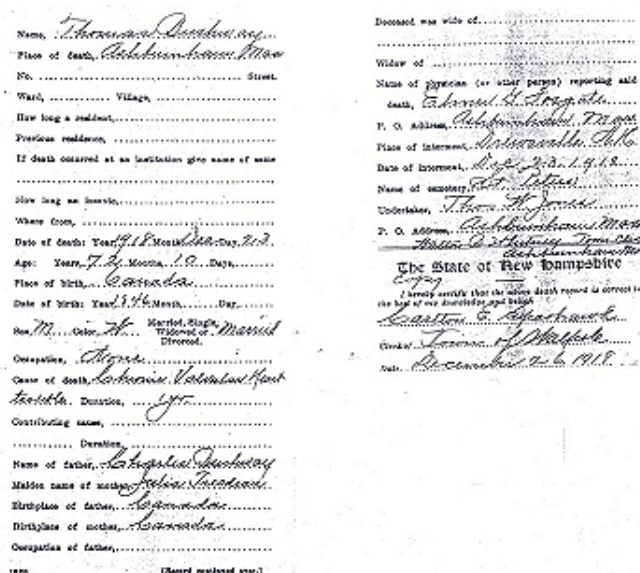 Name, Thomas Bushway
Place of death, Ashburnham Mass
No. Street.
Ward, Village,
How long a resident,
Previous residence,
If death occurred at an institution give name of same
How long an inmate,
Where from,
Date of death: Year, 1918 Month, Dec Day, 23
Age: Years, 72 Months, 10 Days,
Place of birth, Canada
Date of birth: Year, 1846 Month, Day,
Sex, M Color, W Married, Single, Widowed or Divorced. Married
Occupation, None
Cause of death, Chronic Valvular Heart
trouble. Duration, 1 yr.
Contributing cause,
Duration,
Name of father, Charles Bushway
Maiden name of mother, Julia
Birthplace of father, Canada
Birthplace of mother, Canada
Occupation of father,
Deceased was wife of
Widow of
Name of physician (or other person) reporting said
death,
P. O. Address, Ashburnham Mass
Place of interment, N.H.
Date of interment, Dec. 23. 1918
Name of cemetery, St. Peters
Undertaker, Thos W Jones
P. O. Address, Ashburnham Mass
Walter C Whitney Town Clerk
Ashburnham Mass
The State of New Hampshire
Copy
I hereby certify that the above death record is correct to
the best of my knowledge and belief.
Carlton E. Sparhawk
Clerk of Town of Walpole
Date, December 26 1918